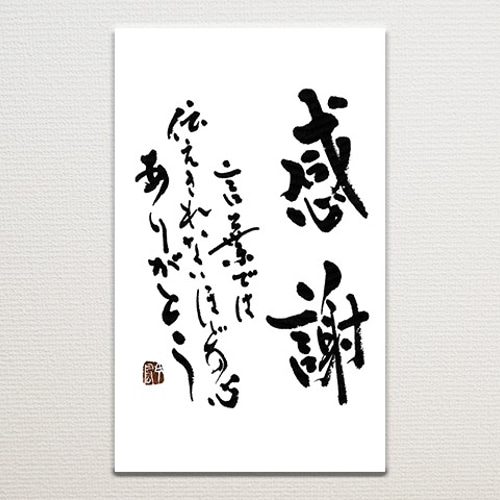 感謝
言葉では
伝えきれないほどの心
ありがとう